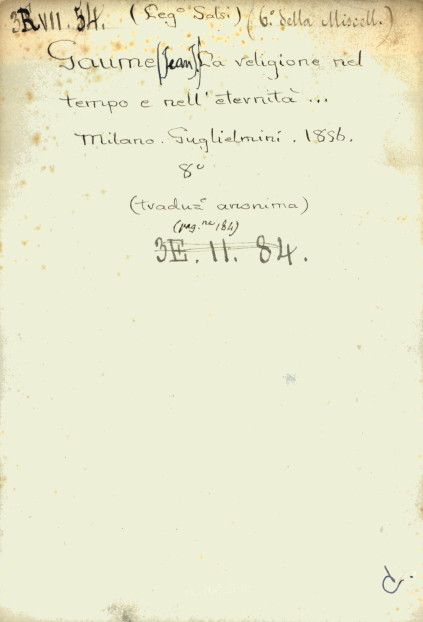 3R VII. 54. (Leg.o Salsi) (6.o della Miscell.)
Gaume [Jean] La religione nel
tempo e nell'eternità ...
Milano. Guglielmini. 1856.
8o
(traduz.e anonima)
(pag.ne 184)
3E. II. 84.